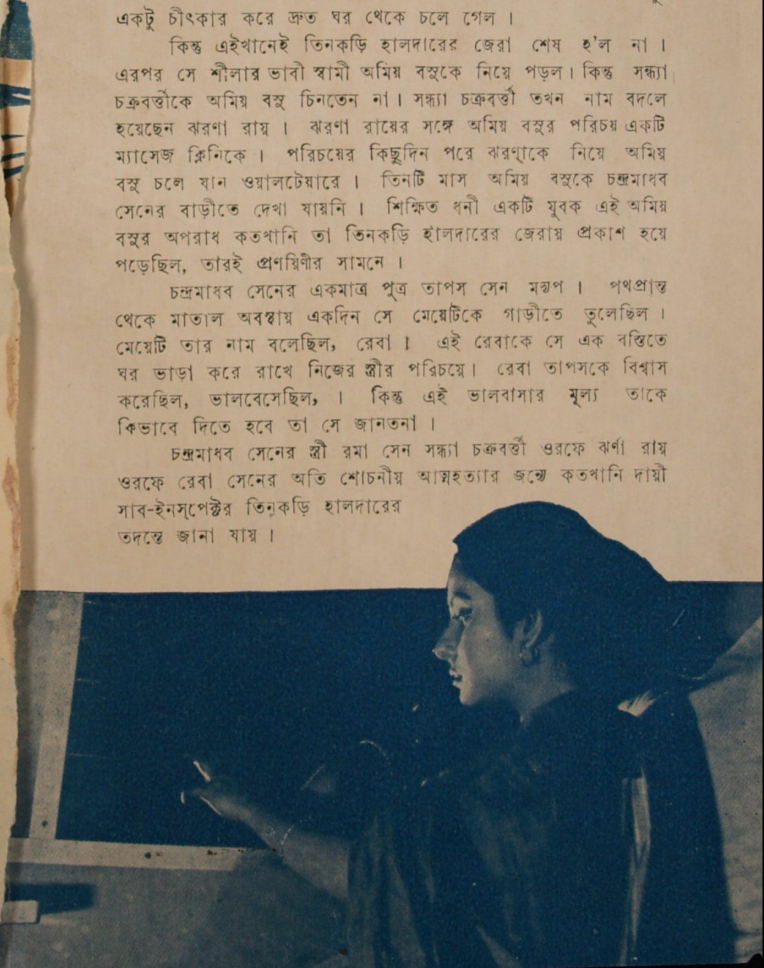 একটু চীৎকার করে দ্রুত ঘর থেকে চলে গেল ।
কিন্তু এইখানেই তিনকড়ি হালদারের জেরা শেষ হ'ল না ।
এরপর সে শীলার ভাবী স্বামী অমিয় বসুকে নিয়ে পড়ল । কিন্তু সন্ধ্যা
চক্রবর্ত্তীকে অমিয় বসু চিনতেন না । সন্ধ্যা চক্রবর্ত্তী তখন নাম বদলে
হয়েছেন ঝরণা রায় । ঝরণা রায়ের সঙ্গে অমিয় বসুর পরিচয় একটি
ম্যাসেজ ক্লিনিকে । পরিচয়ের কিছুদিন পরে ঝরণাকে নিয়ে অমিয়
বসু চলে যান ওয়ালটেয়ারে । তিনটি মাস অমিয় বসুকে চন্দ্রমাধব
সেনের বাড়ীতে দেখা যায়নি । শিক্ষিত ধনী একটি যুবক এই অমিয়
বসুর অপরাধ কতখানি তা তিনকড়ি হালদারের জেরায় প্রকাশ হয়ে
পড়েছিল, তারই প্রণয়িণীর সামনে ।
চন্দ্রমাধব সেনের একমাত্র পুত্র তাপস সেন মদ্যপ । পথপ্রান্ত
থেকে মাতাল অবস্থায় একদিন সে মেয়েটিকে গাড়ীতে তুলেছিল ।
মেয়েটি তার নাম বলেছিল, রেবা । এই রেবাকে সে এক বস্তিতে
ঘর ভাড়া করে রাখে নিজের স্ত্রীর পরিচয়ে । রেবা তাপসকে বিশ্বাস
করেছিল, ভালবেসেছিল, । কিন্তু এই ভালবাসার মূল্য তাকে
কিভাবে দিতে হবে তা সে জানতনা ।
চন্দ্রমাধব সেনের স্ত্রী রমা সেন সন্ধ্যা চক্রবর্ত্তী ওরফে ঝর্ণা রায়
ওরফে রেবা সেনের অতি শোচনীয় আত্মহত্যার জন্যে কতখানি দায়ী
সাব-ইনস্‌পেক্টর তিনকড়ি হালদারের
তদন্তে জানা যায় ।